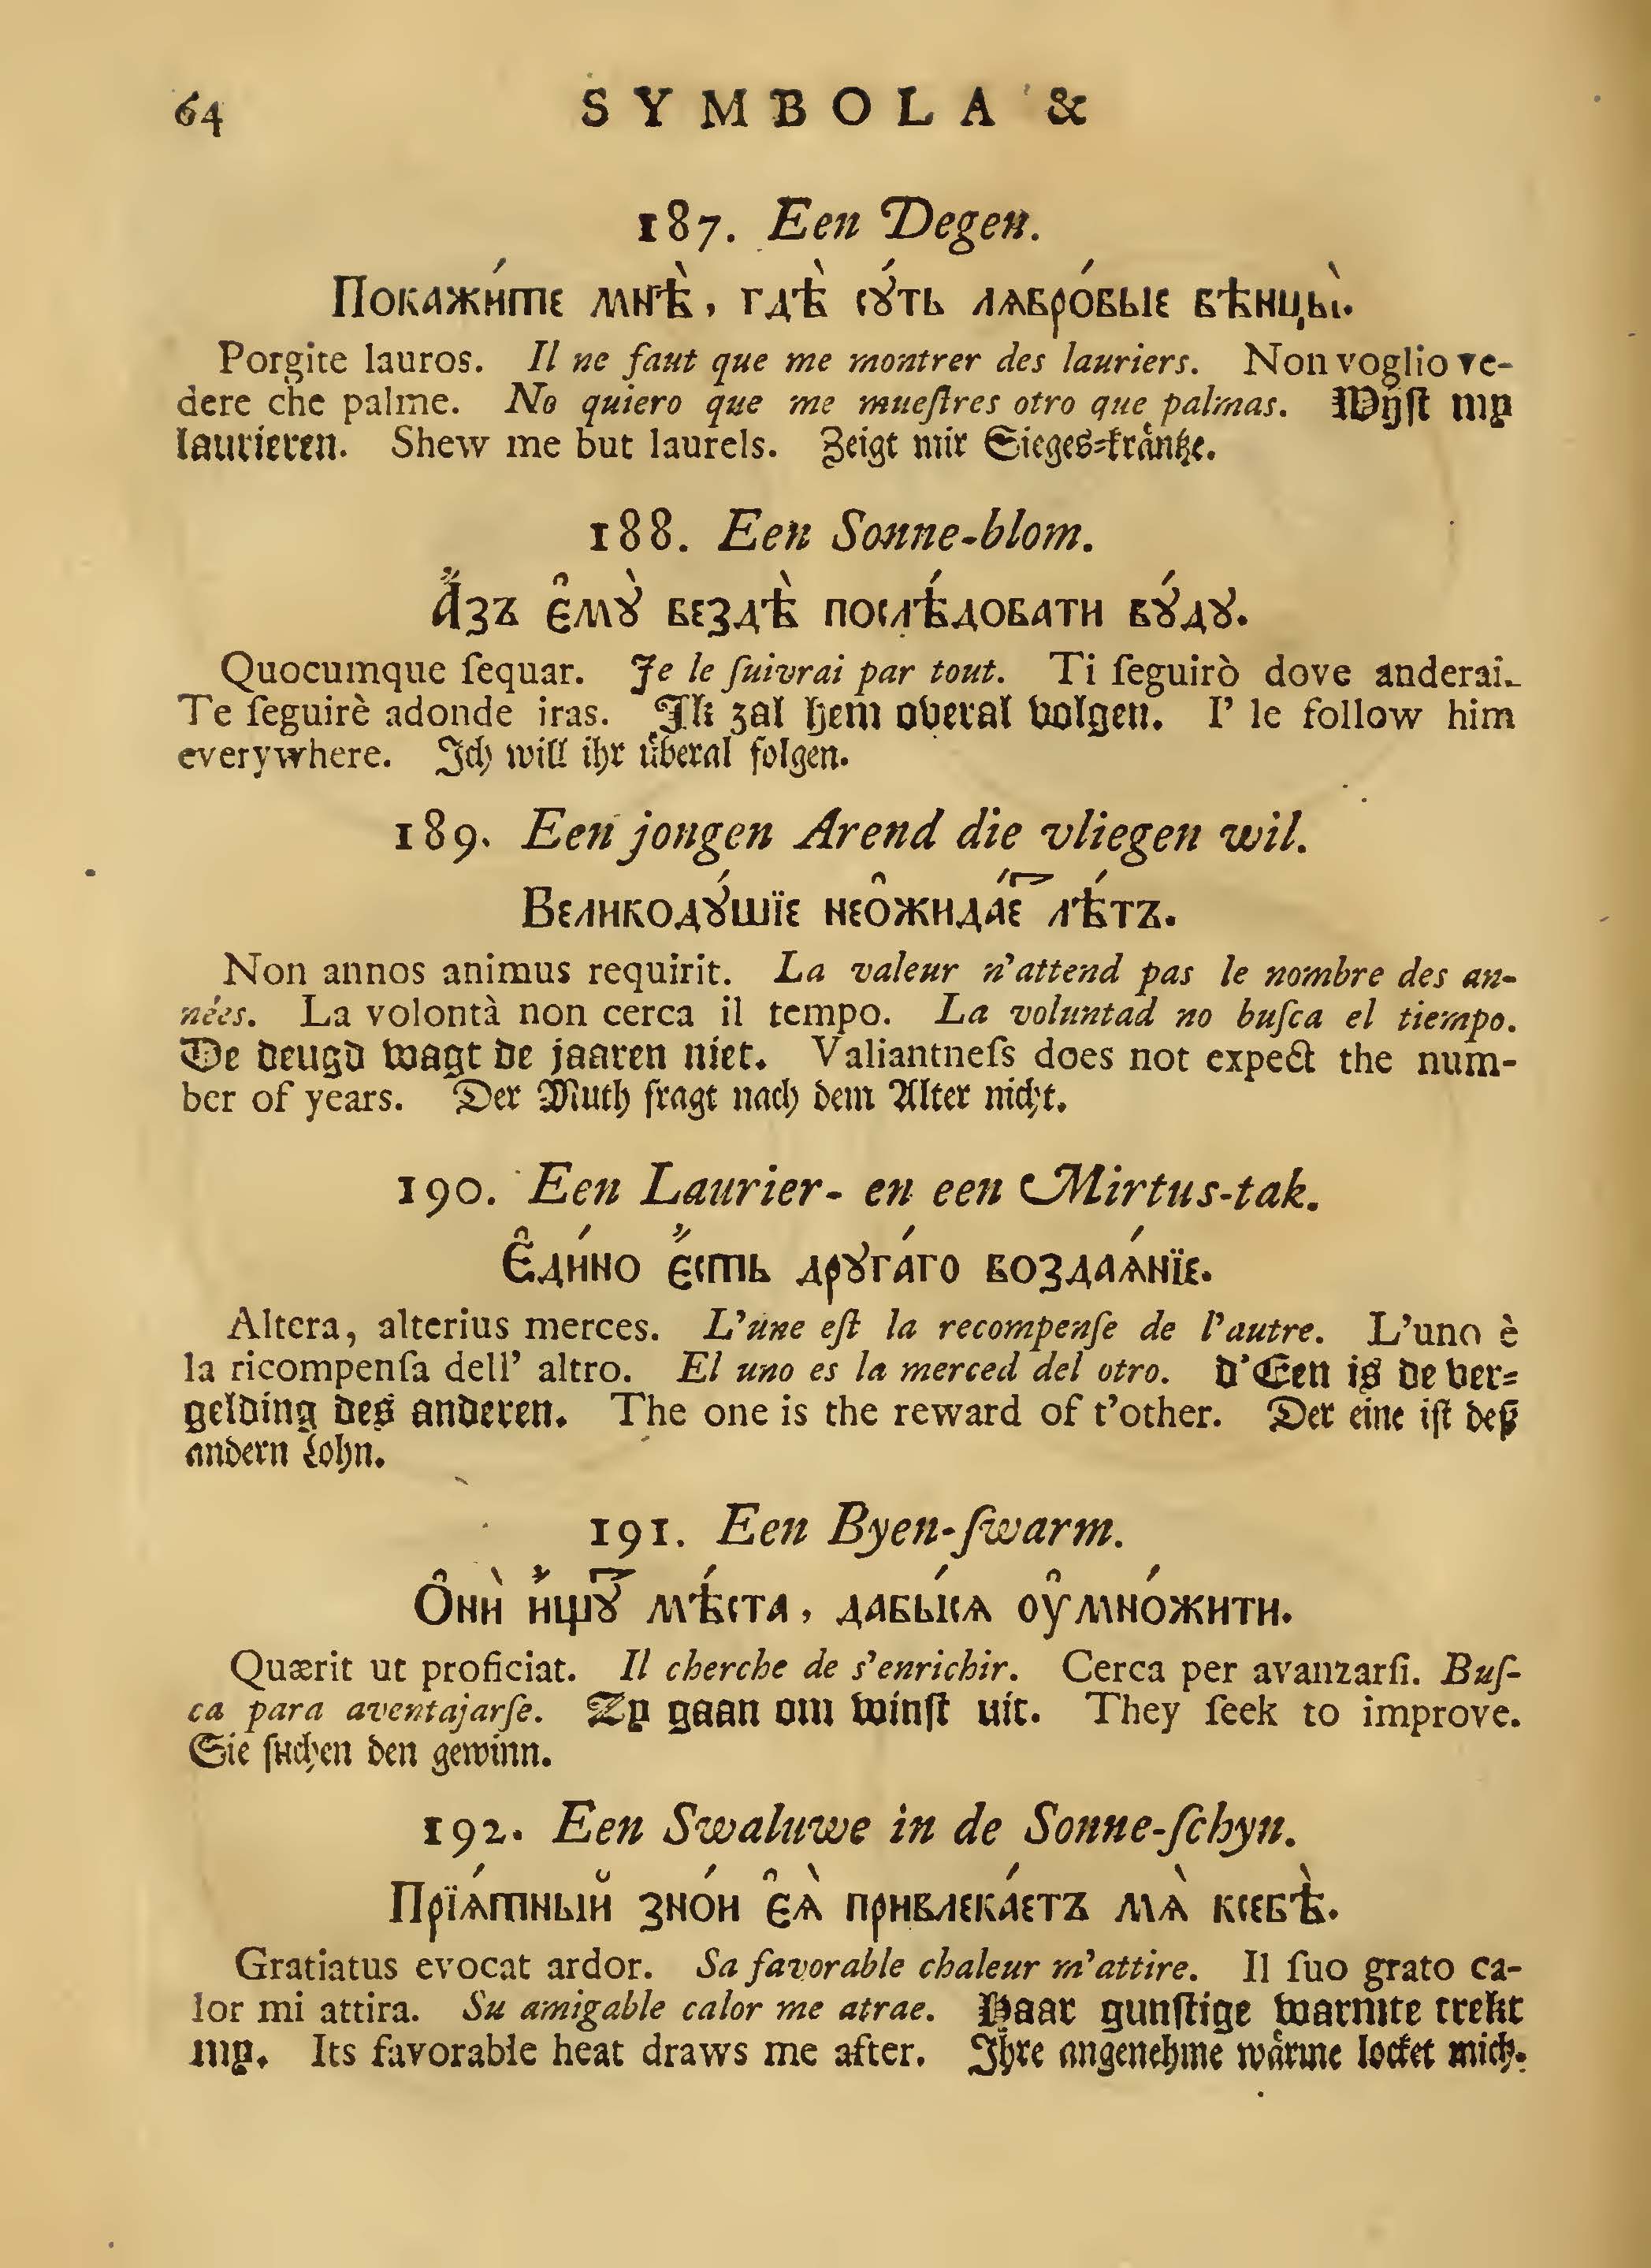 64 SYMBOLA &
187. Een Degen.
Покажи́те мнѣ̀, гдѣ̀ сꙋ́ть лѧвро́вые вѣнцы̀.
Porgite lauros. Il ne faut que me montrer des lauriers. Non voglio ve-
dere che palme. No quiero que me mueſtres otro que palmas. Wijſt my
laurieren. Shew me but laurels. Zeigt mir Sieges-kraͤntze.
188. Een Sonne-blom.
А҆́зъ є҆мꙋ̀ вездѣ̀ послѣ́довати бꙋ́дꙋ.
Quocumque ſequar. Je le ſuivrai par tout. Ti ſeguirò dove anderai.
Te ſeguirè adonde iras. Ik zal hem overal volgen. I' le follow him
everywhere. Ich will ihr uͤberal folgen.
189. Een jongen Arend die vliegen wil.
Великодꙋ́шїе нео̑жида́еⷮ лѣ́тъ.
Non annos animus requirit. La valeur n'attend pas le nombre des an-
nées. La volontà non cerca il tempo. La voluntad no buſca el tiempo.
De deugd wagt de jaaren niet. Valiantneſs does not expect the num-
ber of years. Der Muth fragt nach dem Alter nicht.
190. Een Laurier- en een Mirtus-tak.
Є҆ди́но є҆́сть дрꙋга́го воздаѧ́нїе.
Altera, alterius merces. L'une eſt la recompenſe de l'autre. L'uno è
la ricompenſa dell' altro. El uno es la merced del otro. D'Een is de ver-
gelding des anderen. The one is the reward of t'other. Der eine iſt deß
andern Lohn.
191. Een Byen-ſwarm.
Ѻ҆нѝ и҆́щꙋⷮ мѣ́ста, дабы́сѧ оу҆мно́жити.
Quærit ut proficiat. Il cherche de s'enrichir. Cerca per avanzarſi. Buſ-
ca para aventajarſe. Zy gaan om winſt uit. They ſeek to improve.
Sie ſuchen den gewinn.
192. Een Swaluwe in de Sonne-ſchyn.
Прїѧ́тный зно́и є҆ѧ̀ привлека́етъ мѧ̀ ксебѣ̀.
Gratiatus evocat ardor. Sa favorable chaleur m'attire. Il ſuo grato ca-
lor mi attira. Su amigable calor me atrae. Haar gunſtige warmte trekt
my. Its favorable heat draws me after. Ihre angenehme waͤrme locket mich.